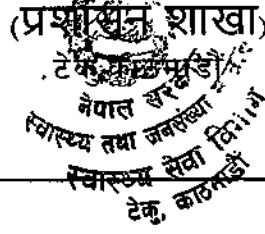 (प्रशासन शाखा)
टेकु, काठमाडौं
नेपाल सरकार
स्वास्थ्य तथा जनसंख्या
स्वास्थ्य सेवा विभाग
टेकु, काठमाडौं